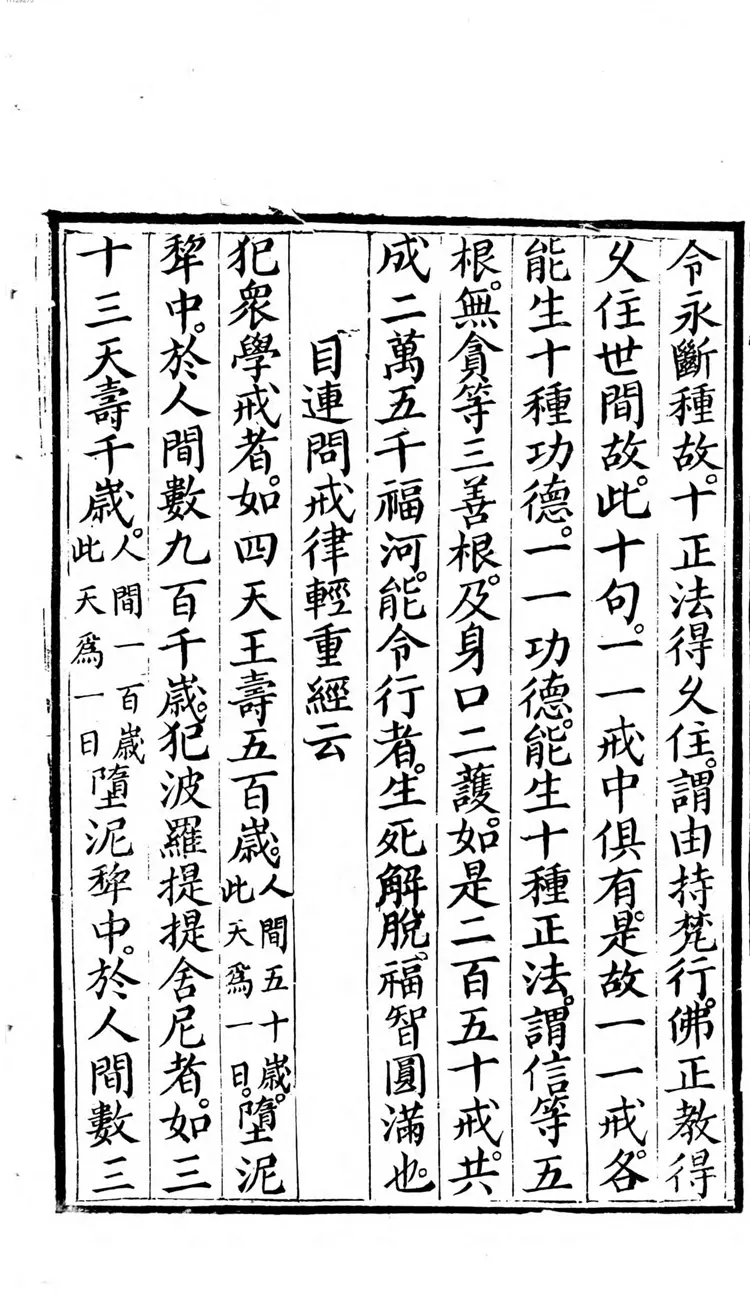 令永斷種故。十正法得久住。謂由持梵行。佛正教得
久住世間故。此十句。一一戒中俱有。是故一一戒。各
能生十種功德。一一功德。能生十種正法。謂信等五
根。無貪等三善根。及身口二護。如是二百五十戒。共
成二萬五千福河。能令行者。生死解脫。福智圓滿也。
目連問戒律輕重經云
犯眾學戒者。如四天王壽五百歲。人間五十歲。此天爲一日。墮泥
犂中。於人間數九百千歲。犯波羅提提舍尼者。如三
十三天壽千歲。人間一百歲此天爲一日墮泥犂中。於人間數三